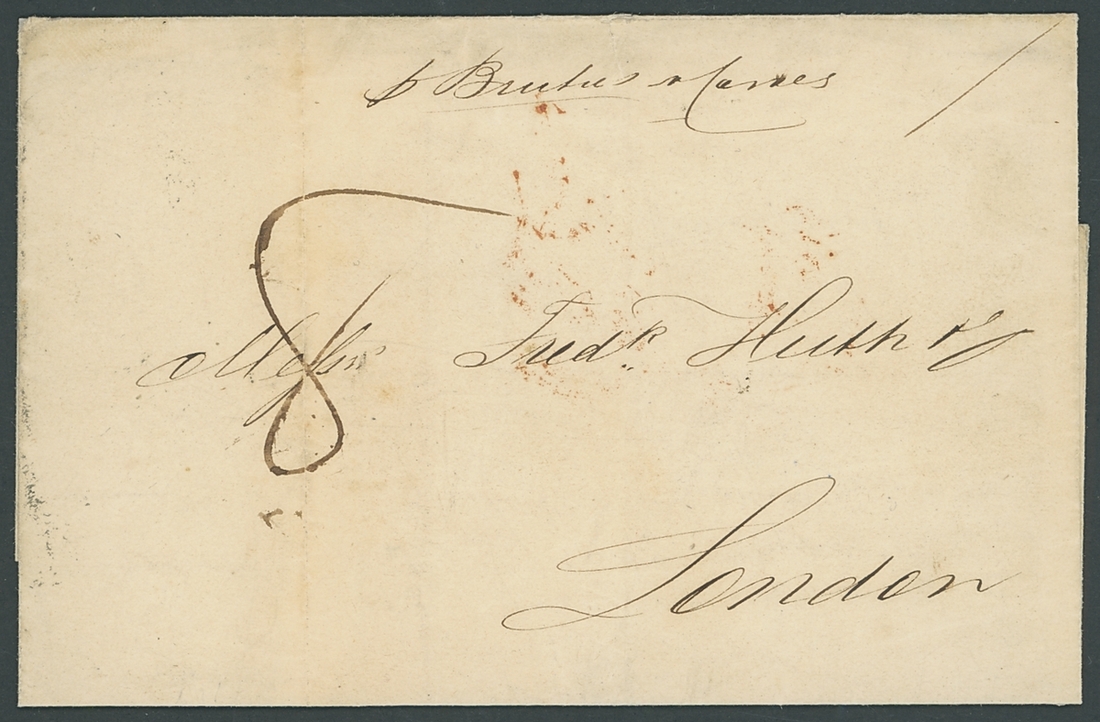 p Brutus
8
Messrs Fredk. Huth & Co
London